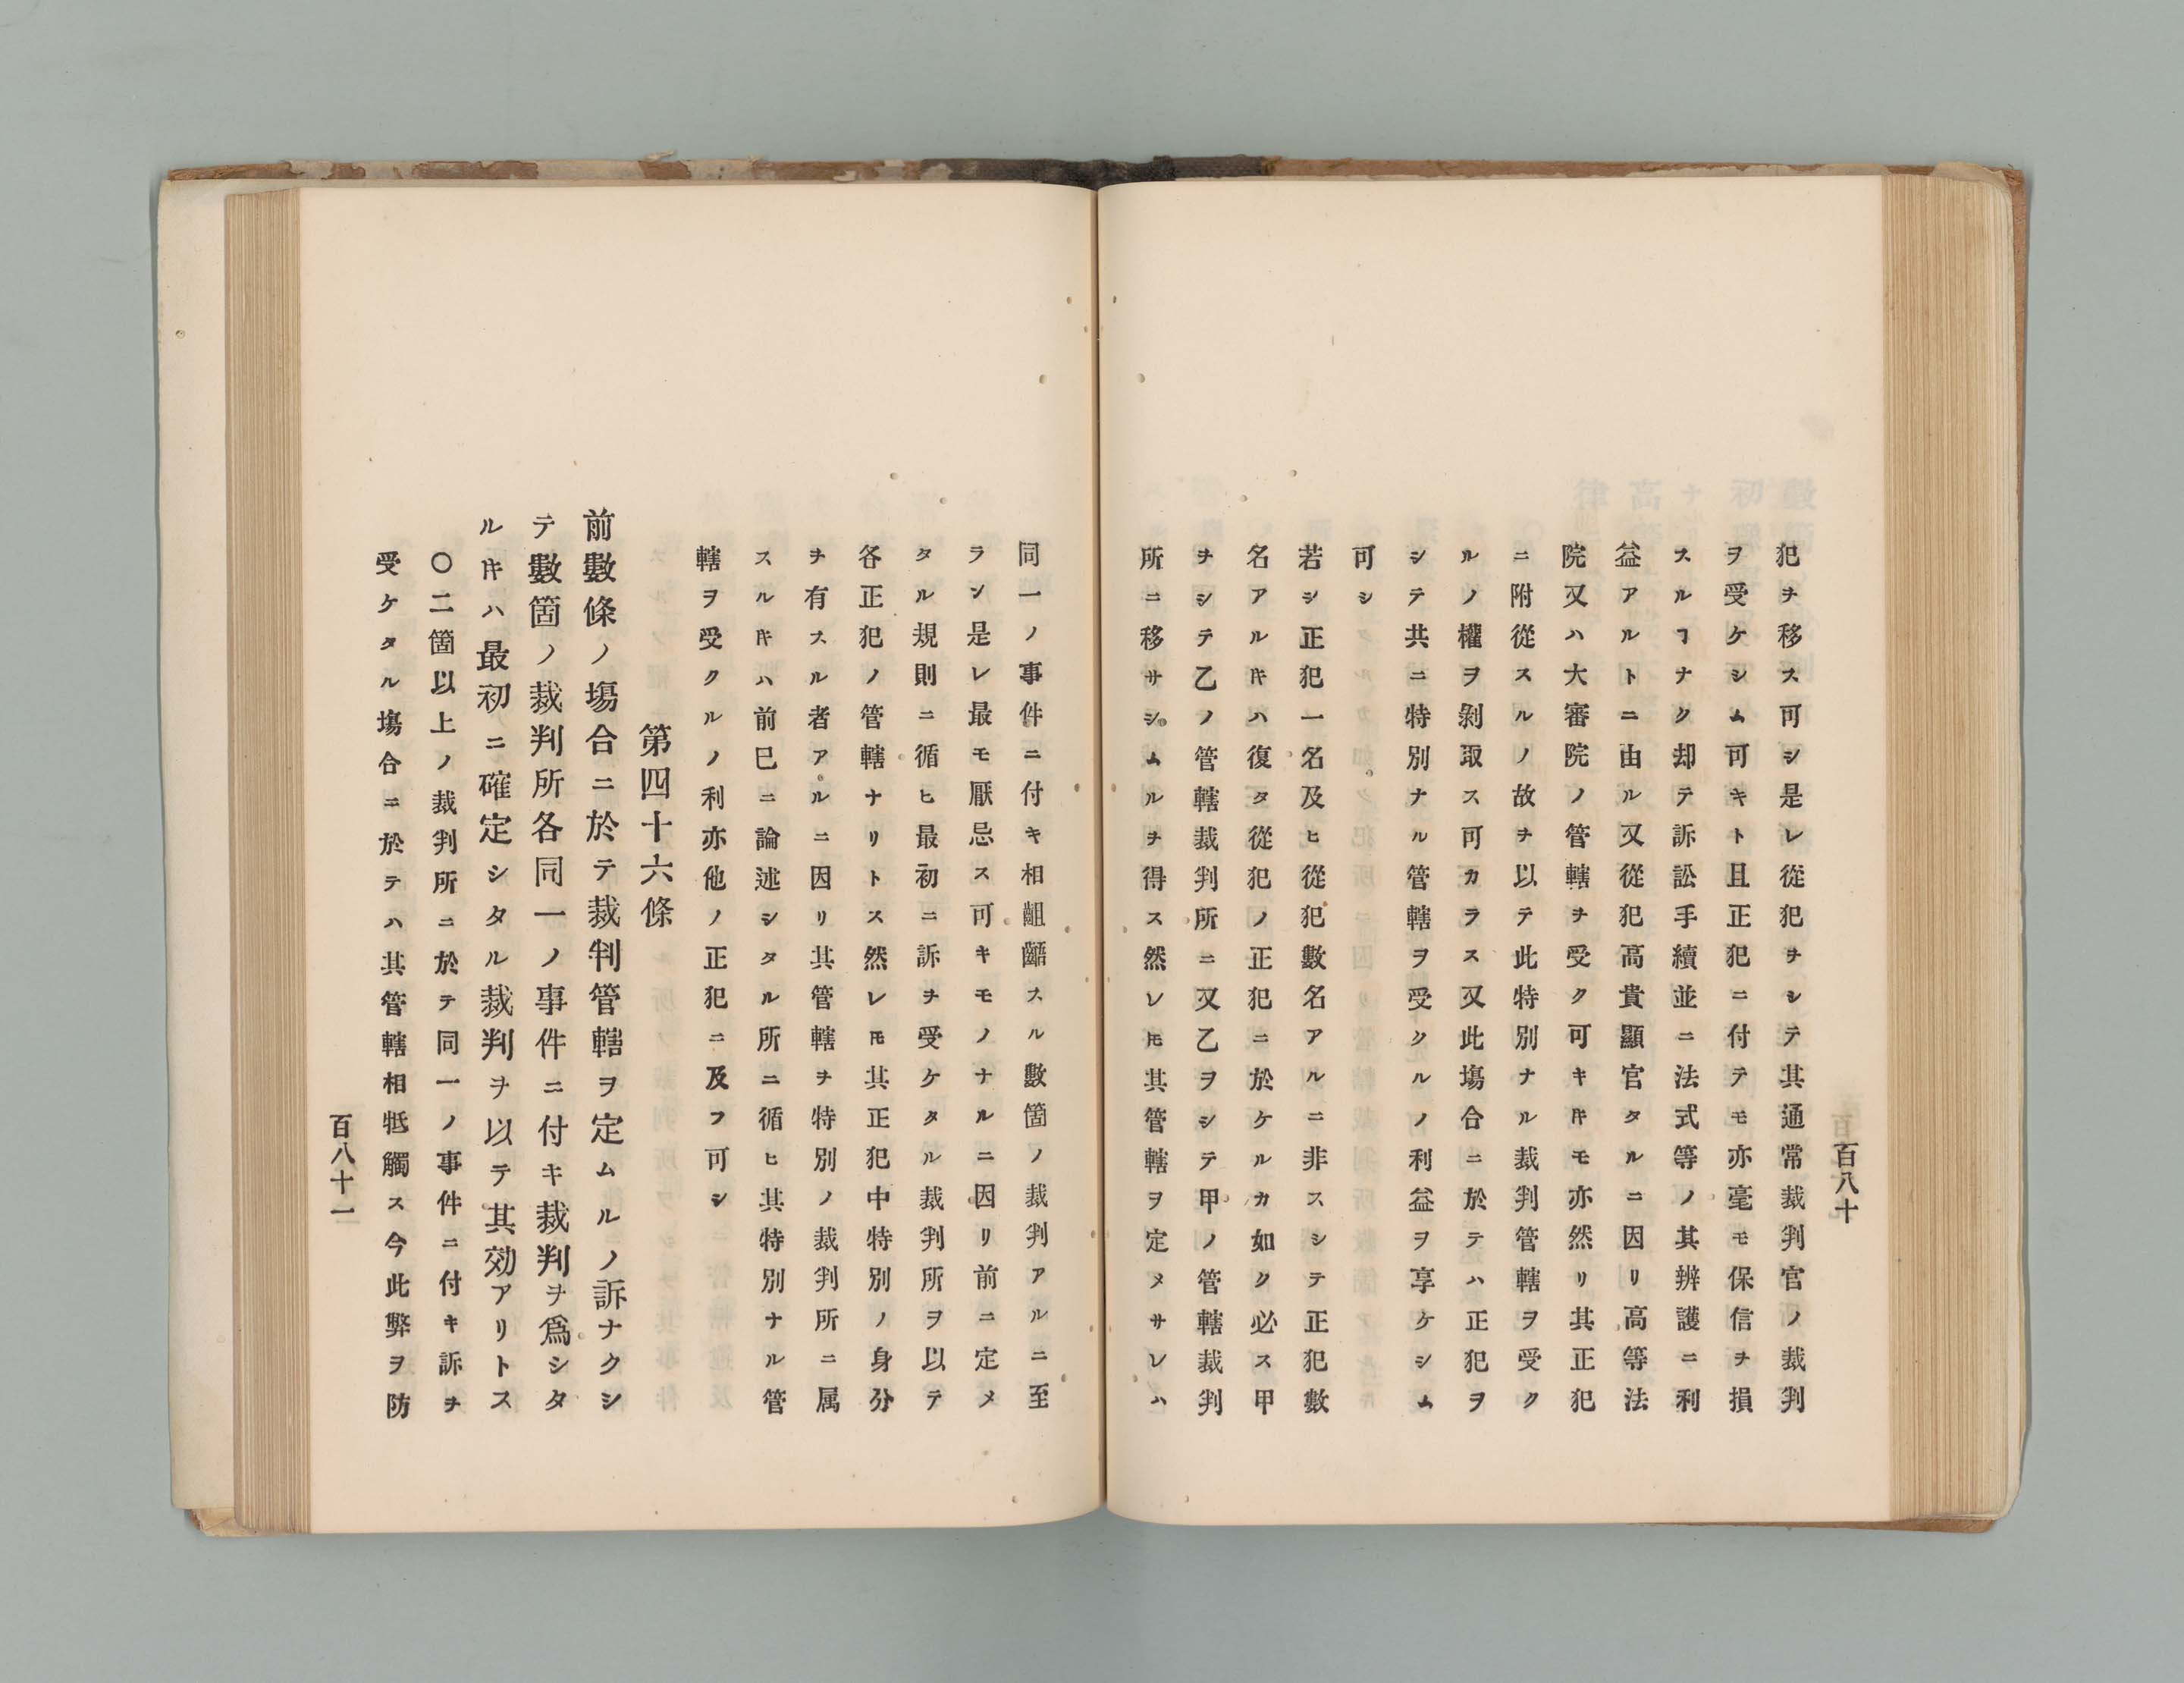 百八十
犯ヲ移ス可シ是レ從犯ヲシテ其通常裁判官ノ裁判
ヲ受ケシム可キト且正犯ニ付テモ亦毫モ保信ヲ損
スルヿナク却テ訴訟手續並ニ法式等ノ其辨護ニ利
益アルトニ由ル又從犯高貴顯官タルニ因リ高等法
院又ハ大審院ノ管轄ヲ受ク可キ𪜈モ亦然リ其正犯
ニ附從スルノ故ヲ以テ此特別ナル裁判管轄ヲ受ク
ルノ權ヲ剝取ス可カラス又此塲合ニ於テハ正犯ヲ
シテ共ニ特別ナル管轄ヲ受クルノ利益ヲ享ケシム
可シ
若シ正犯一名及ヒ從犯數名アルニ非スシテ正犯數
名アルキハ復タ從犯ノ正犯ニ於ケルカ如ク必ス甲
ヲシテ乙ノ管轄裁判所ニ又乙ヲシテ甲ノ管轄裁判
所ニ移サシムルヲ得ス然レ𪜈其管轄ヲ定メサレハ
同一ノ事件ニ付キ相齟齬スル數箇ノ裁判アルニ至
ラン是レ最モ厭忌ス可キモノナルニ因リ前ニ定メ
タル規則ニ循ヒ最初ニ訴ヲ受ケタル裁判所ヲ以テ
各正犯ノ管轄ナリトス然レ𪜈其正犯中特別ノ身分
ヲ有スル者アルニ因リ其管轄ヲ特別ノ裁判所ニ属
スルキハ前巳ニ論述シタル所ニ循ヒ其特別ナル管
轄ヲ受クルノ利亦他ノ正犯ニ及フ可シ
第四十六條
前數條ノ塲合ニ於テ裁判管轄ヲ定ムルノ訴ナクシ
テ數箇ノ裁判所各同一ノ事件ニ付キ裁判ヲ爲シタ
ルキハ最初ニ確定シタル裁判ヲ以テ其効アリトス
〇二箇以上ノ裁判所ニ於テ同一ノ事件ニ付キ訴ヲ
受ケタル塲合ニ於テハ其管轄相牴觸ス今此弊ヲ防
百八十一